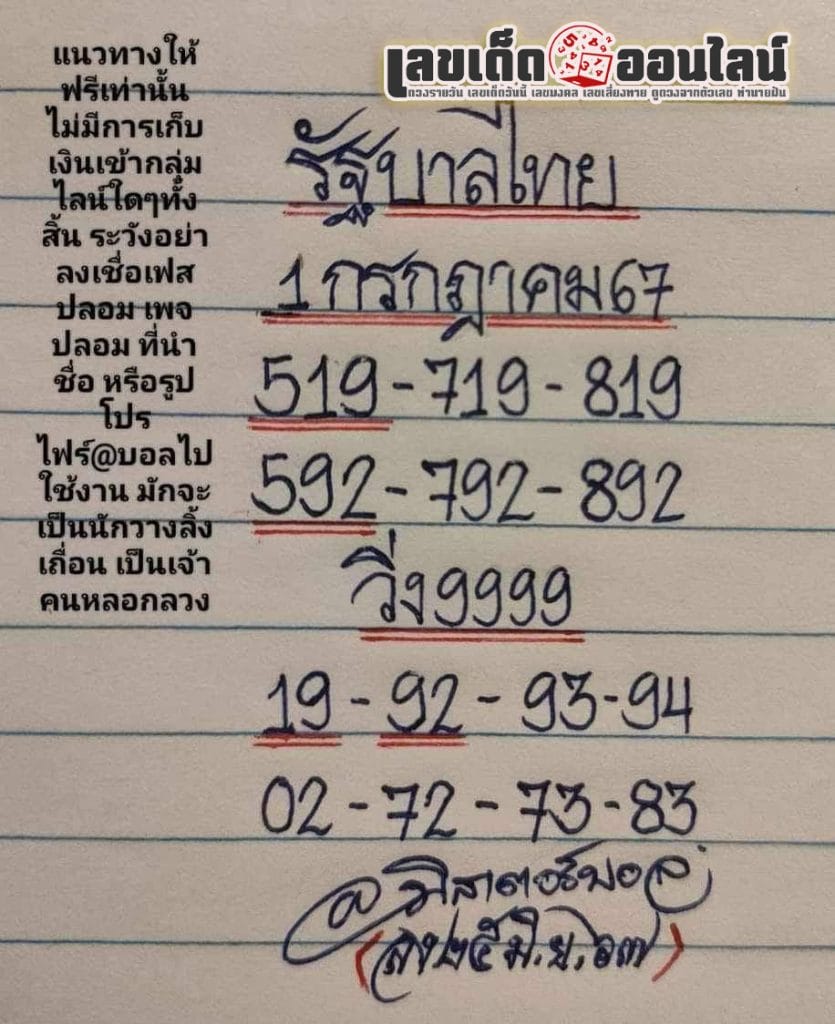 แนวทางให้
ฟรีเท่านั้น
ไม่มีการเก็บ
เงินเข้ากลุ่ม
ไลน์ใดๆทั้ง
สิ้น ระวังอย่า
ลงเชื่อเฟส
ปลอม เพจ
ปลอม ที่นำ
ชื่อ หรือรูป
โปร
ไฟร์@บอลไป
ใช้งาน มักจะ
เป็นนักวางลิ้ง
เถื่อน เป็นเจ้า
คนหลอกลวง
เลขเด็ดออนไลน์
ดวงรายวัน เลขเด็ดวันนี้ เลขมงคล เลขเสี่ยงทาย ดูดวงจากตัวเลข ทำนายฝัน
รัฐบาลไทย
1 กรกฎาคม 67
519 - 719 - 819
592 - 792 - 892
วิ่ง 9999
19 - 92 - 93 - 94
02 - 72 - 73 - 83
@มิสเตอร์บอล
(ลง ๒๕ มิ.ย. ๖๗)